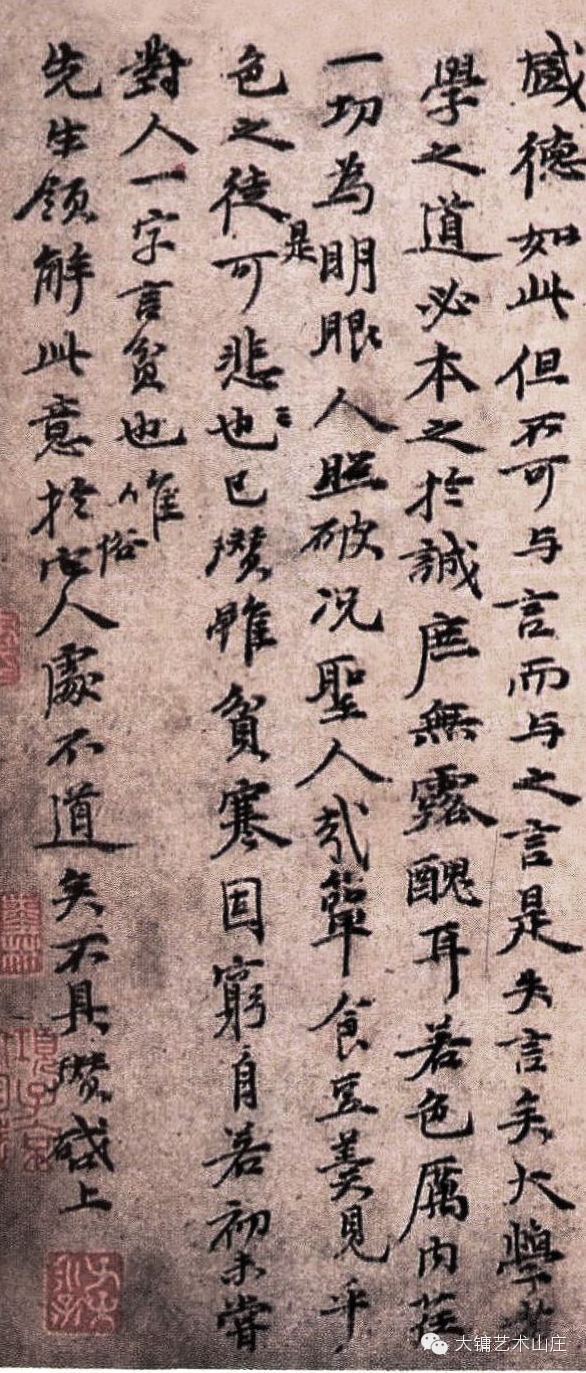 盛德如此但不可与言而与之言是失言矣大學
學之道必本之於誠庶無露醜耳若色厲内荏
一切為是明眼人照破况聖人哉簞食豆羹見乎
色之徒可悲也已瓚雖貧寒固窮自若初未嘗
對人一字言貧也惟
先生領解此意於它俗人處不道矣不具瓚啓上
項子京
大镛艺术山庄